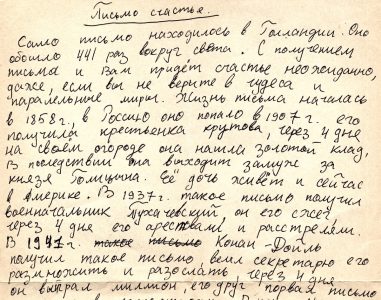 Письмо счастье.
Само письмо находилось в Голландии. Оно
обошло 441 раз вокруг света. С получением
письма и Вам придёт счастье неожиданно,
даже, если вы не верите в чудеса и
паралельные миры. Жизнь письма началась
в 1858 г., в Россию оно попало в 1907 г. его
получила крестьенка крутова, через 4 дня
на своём огороде она нашла золотой клад,
В последствии она выходит замуже за
князя Голицына. Её дочь живёт и сейчас
в Америке. В 1937г. такое письмо получил
военначальник Тухачевский, он его сжёг,
через 4 дня его арествали и расстреляли.
В 1947г. такое письмо Конан-Дойль
получил такое письмо, велил секретарю его
размножить и разослать, через 4 дня
он выграл миллион, его друг порвал письмо